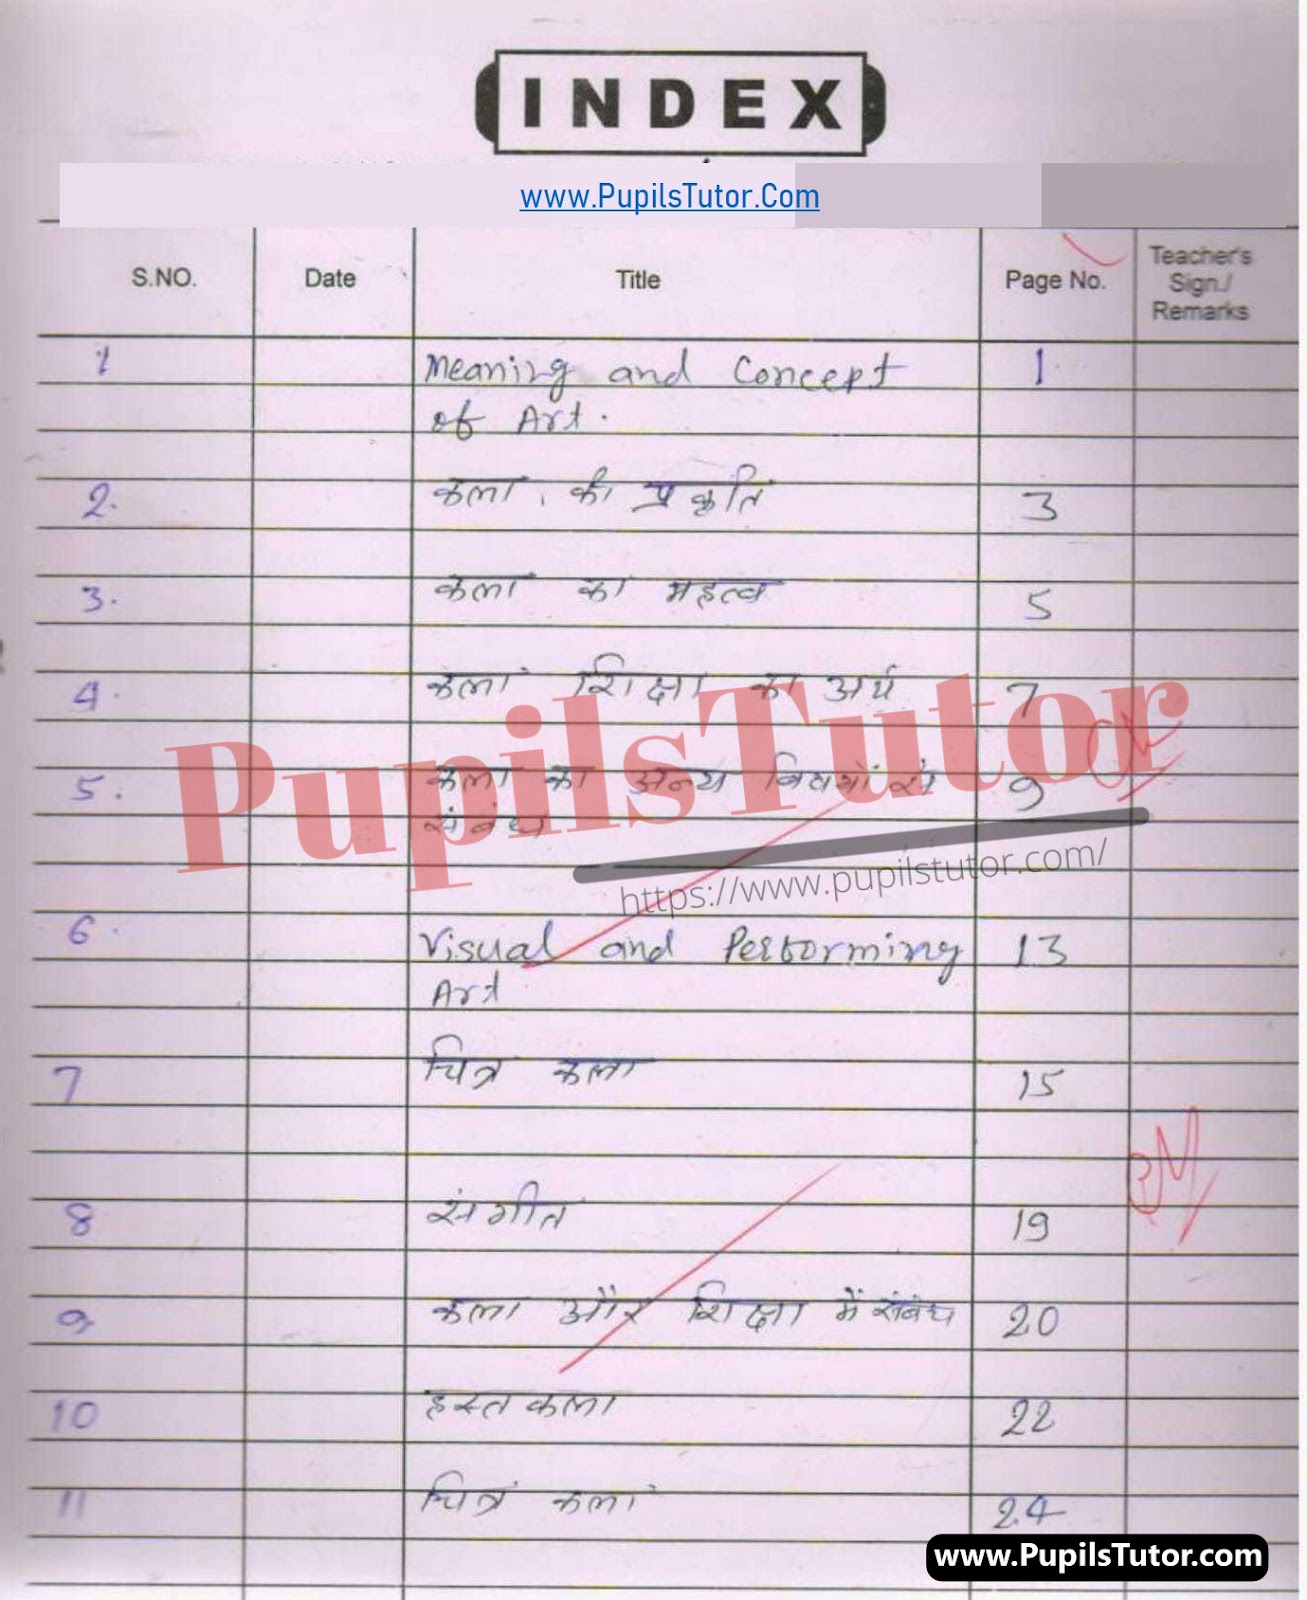 INDEX
www.PupilsTutor.Com
S.NO. Date Title Page No. Teacher's Sign./ Remarks
1 Meaning and Concept 1
of Art.
2. कला की प्रकृति 3
3. कला का महत्व 5
4. कला शिक्षा का अर्थ 7
5. कला का अन्य विषयों से 9
संबंध
PupilsTutor
https://www.pupilstutor.com/
6. Visual and Performing 13
Art
7 चित्र कला 15
8 संगीत 19
9 कला और शिक्षा में संबंध 20
10 हस्तकला 22
11 चित्र कला 24
www.PupilsTutor.com